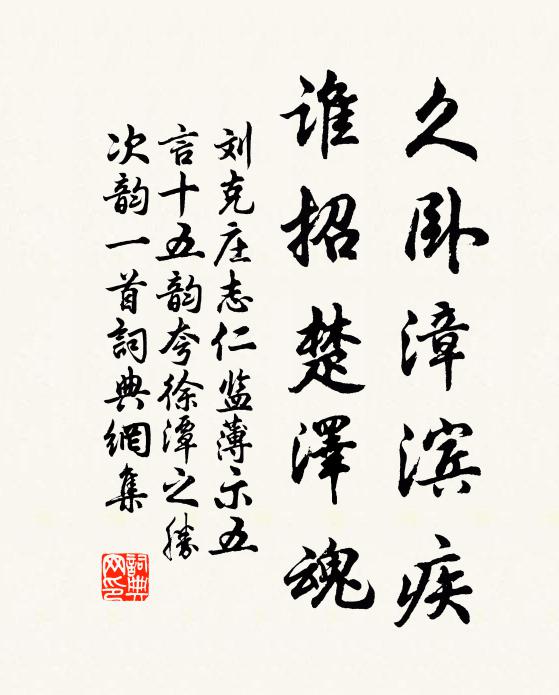 久卧漳滨疾
谁招楚澤魂
刘克庄志仁监薄示五
言十五韵夸徐潭之勝
次韵一首詞典網集
詞典
网印